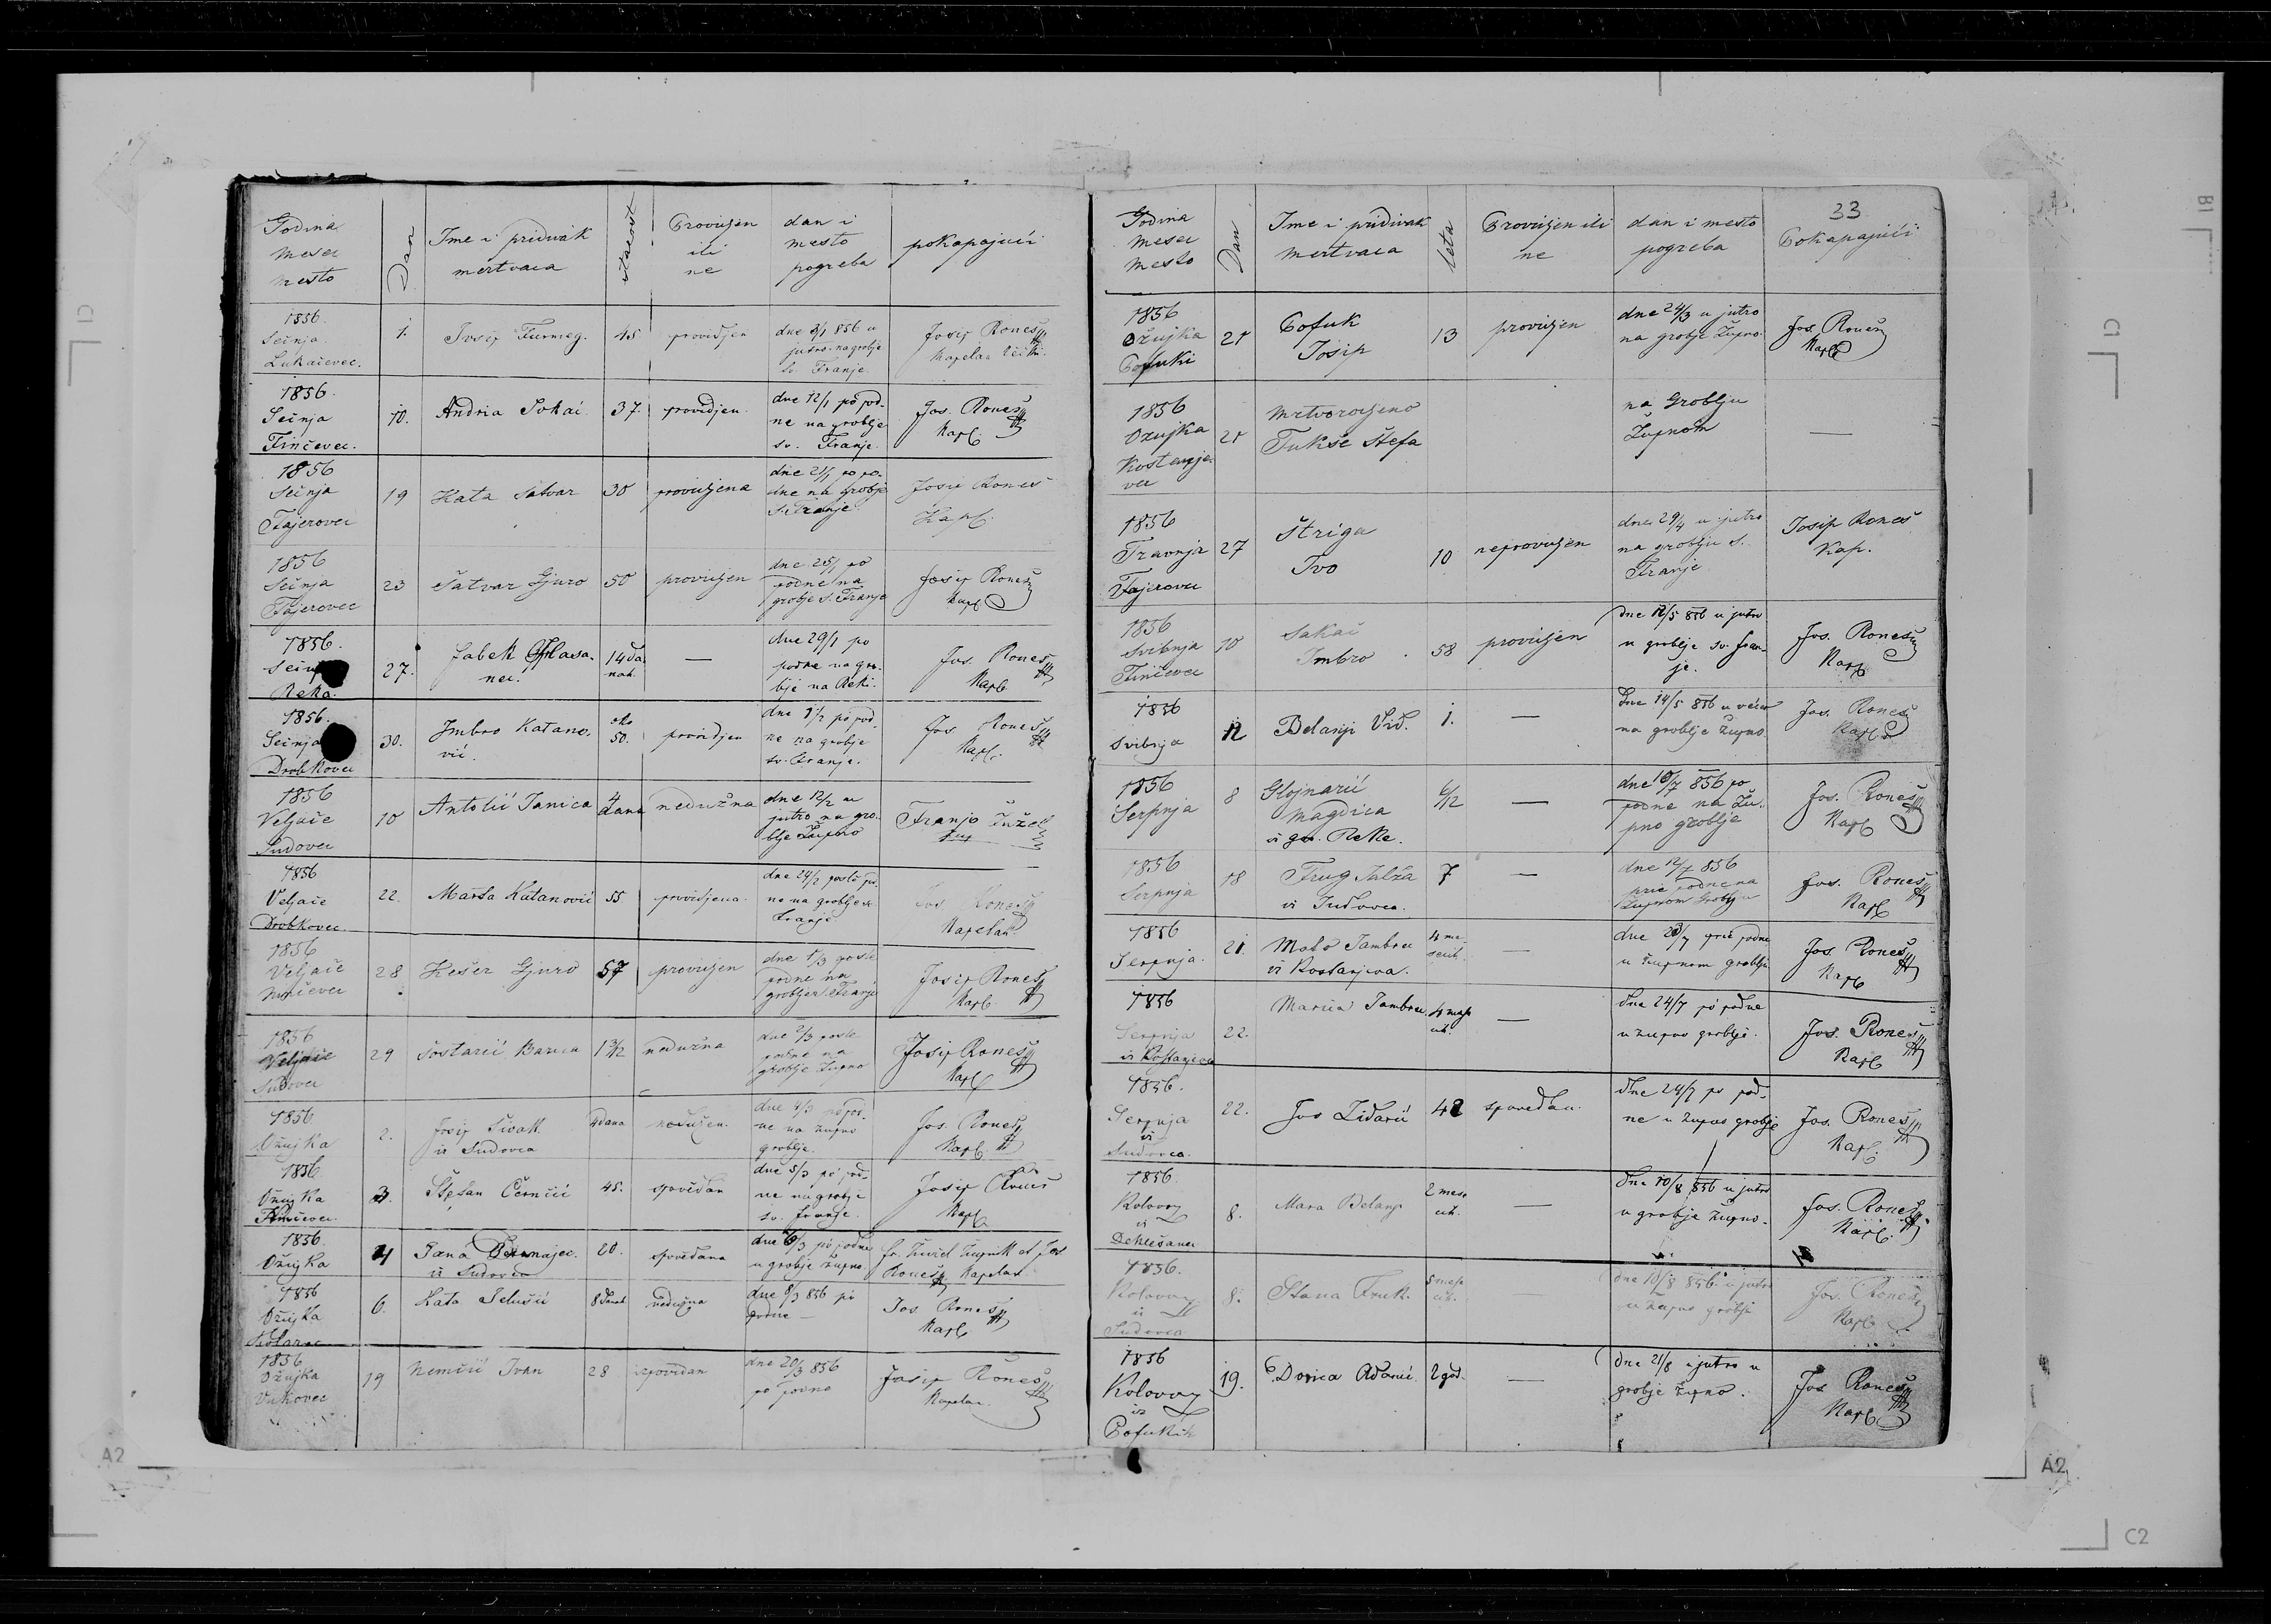 Godina
mesec
mesto
Dan
Ime i pridivak
mertvaca
starost
Providjen
ili
ne
dan i
mesto
pogreba
pokapajući
1856.
Sečnja
Lukačevec.
1.
Josip Furmeg.
45.
providjen
dne 3/1 856 u
jutro na groblje
sv. Franje.
Josip Roneš
Kapelan
1856.
Sečnja
Finčevec.
10.
Andria Sokač.
37.
providjen.
dne 12/1 po pod-
ne na groblje
sv. Franje.
Jos. Roneš
Kapl.
1856
Sečnja
Fajerovec
19
Kata Šatvar
30
providjena
dne 21/1 po po-
dne na groblje
s. Franje
Josip Roneš
Kapl.
1856
Sečnja
Fajerovec
23
Šatvar Gjuro
50
providjen
dne 25/1 po
podne na
groblje s. Franje
Josip Roneš
Kapl
1856.
Reka.
27.
Jabek
14 da
nah.
—
dne 29/1 po
podne na gro-
blje na Reki.
Jos. Roneš
Kapl.
1856.
Sečnja
Drobkovec
30.
Imbro Katano-
vić.
oko
50.
providjen
dne 1/2 po pod-
ne na groblje
sv. Franje.
Jos. Roneš
Kapl.
1856
Veljače
Sudovec
10
Antolić Janica
4
dana
nedužna
dne 12/2 u
jutro na gro-
blje Župno
Franjo Žužel
žup
1856
Veljače
Drobkovec
22.
Marta Katanović
55
providjena.
dne 24/2 posle po-
ne na groblje s.
Franje
Jos Roneš
Kapelan
1856
Veljače
28
Kešer Gjuro
57
providjen
dne 1/3 posle
podne na
groblje s. Franje
Josip Roneš
Kapl.
1856
Veljače
Sudovec
29
Šoštarić Barica
1 3/12
nedužna
dne 2/3 posle
podne na
groblje Župno
Josip Roneš
Kapl
1856
Ožujka
2.
Josip Sivak
iz Sudovca
4 dana
nedužen.
dne 4/3 po pod-
ne na župno
groblje.
Jos. Roneš
Kapl.
1856
Ožujka
3.
Štefan Černčić
45.
spovidan
dne 5/3 po pod-
ne na groblje
sv. Franje.
Josip Roneš
Kapl.
1856.
Ožujka
4
Jana
iz Sudovca
20.
spovidana
dne 6/3 po podne
u groblje župno.
fr. Žužel župnik et Jos
Roneš Kapelan
1856
Ožujka
6.
Kata Jelušić
8 danah
nedužna
dne 8/3 856 po
podne —
Jos Roneš
Kapl
1856
Ožujka
Vukovec
19
Nemčić Ivan
28
spovidan
dne 20/3 856
po podne
Josip Roneš
Kapelan
33
Godina
mesec
mesto
Dan
Ime i pridivak
mertvaca
leta
Providjen ili
ne
dan i mesto
pogreba
Pokapajući
1856
Ožujka
Pofuki
21
Pofuk
Josip
13
providjen
dne 24/3 u jutro
na groblje Župno
Jos. Roneš
Kapl
1856
Ožujka
Kostanje-
vec
21
Mrtvorodjeno
Fukše Štefa
na Groblju
Župnom
—
1856
Travnja
Fajerovec
27
Štriga
Ivo
10
neprovidjen
dne 29/4 u jutro
na groblju s.
Franje
Josip Roneš
Kap.
1856
Svibnja
Finčevec
10
Sakač
Imbro
58
providjen
dne 12/5 856 u jutro
u groblje sv. fran-
je.
Jos. Roneš
Kapl.
1856
Svibnja
12
Belanji Vid.
1.
—
dne 14/5 856 u večer
na groblje župno
Jos. Roneš
Kapl.
1856
Serpnja
8
Glojnarić
Magdica
iz gor. Reke.
6/12
—
dne 10/7 856 po
podne na Žu-
pno groblje
Jos. Roneš
Kapl
1856
Serpnja
18
Frug Jalža
iz Sudovca.
7
—
dne 12/7 856
prie podne na
Župnom Groblju
Jos. Roneš
Kapl
1856
Serpnja.
21.
Mato Jambrec
iz Kostanjeva.
4 me-
secih.
—
dne 20/7 prie podne
u župnom groblju
Jos. Roneš
Kapl
1856
Serpnja
iz Kostanjevca
22.
Marica Jambrec
—
dne 24/7 po podne
u župno groblje.
Jos. Roneš
Kapl
1856.
Serpnja
iz
Sudovca.
22.
Jos Židarić
42
spovedan.
dne 24/7 po pod-
ne u župno groblje
Jos. Roneš
Kapl.
1856.
Kolovoz
iz
8.
Mara Belanji
2 mese
cih.
—
dne 10/8 856 u jutro
u groblje župno.
Jos. Roneš
Kapl.
1856.
Kolovoz
iz
Sudovca
8.
Stana Fruk.
5 mese
cih.
—
dne 10/8 856 u jutro
u župno groblje
Jos. Roneš
Kapl
1856
Kolovoz
iz
Pofukih
19.
Dorica Adanić
2 god.
—
dne 21/8 u jutro u
groblje župno.
Jos Roneš
Kapl
A2
A2
C1
C1
B1
C2